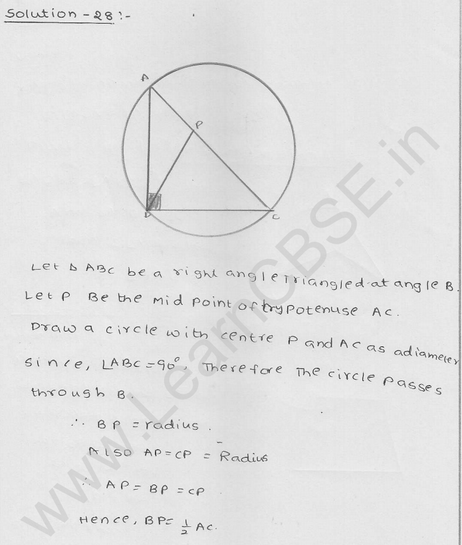 Solution-28:-
A
P
D
C
Let Δ ABC be a right angle triangled at angle B.
Let P Be the mid point of hypotenuse AC.
Draw a circle with centre P and AC as adiameter
Since, ∠ABC = 90°, Therefore The circle passes
through B.
∴ BP = radius.
ALSO AP = CP = Radius
∴ AP = BP = CP
Hence, BP = 1/2 AC.
www.LearnCBSE.in